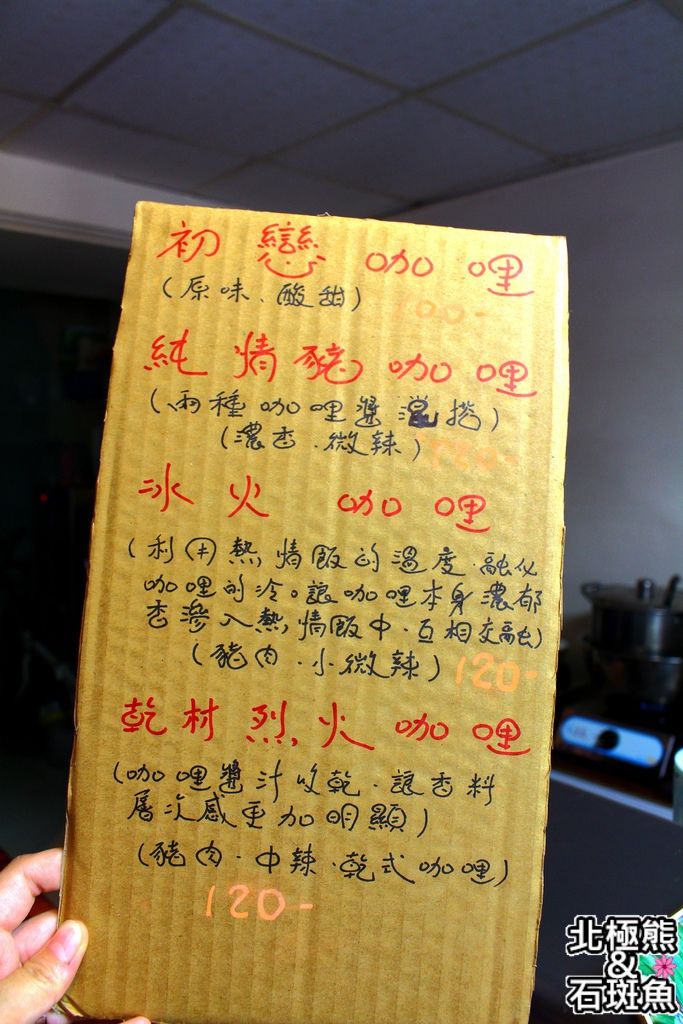 初戀 咖哩
(原味、酸甜)
100-
純情豬咖哩
(兩種咖哩醬混搭)
(濃香.微辣)
冰火 咖哩
(利用熱情飯的溫度.融化
咖哩的冷。讓咖哩本身濃郁
香滲入熱情飯中.互相交融)
(豬肉.小微辣) 120-
乾材烈火咖哩
(咖哩醬汁收乾.讓香料
層次感更加明顯)
(豬肉.中辣.乾式咖哩)
120-
北極熊
&
石斑魚